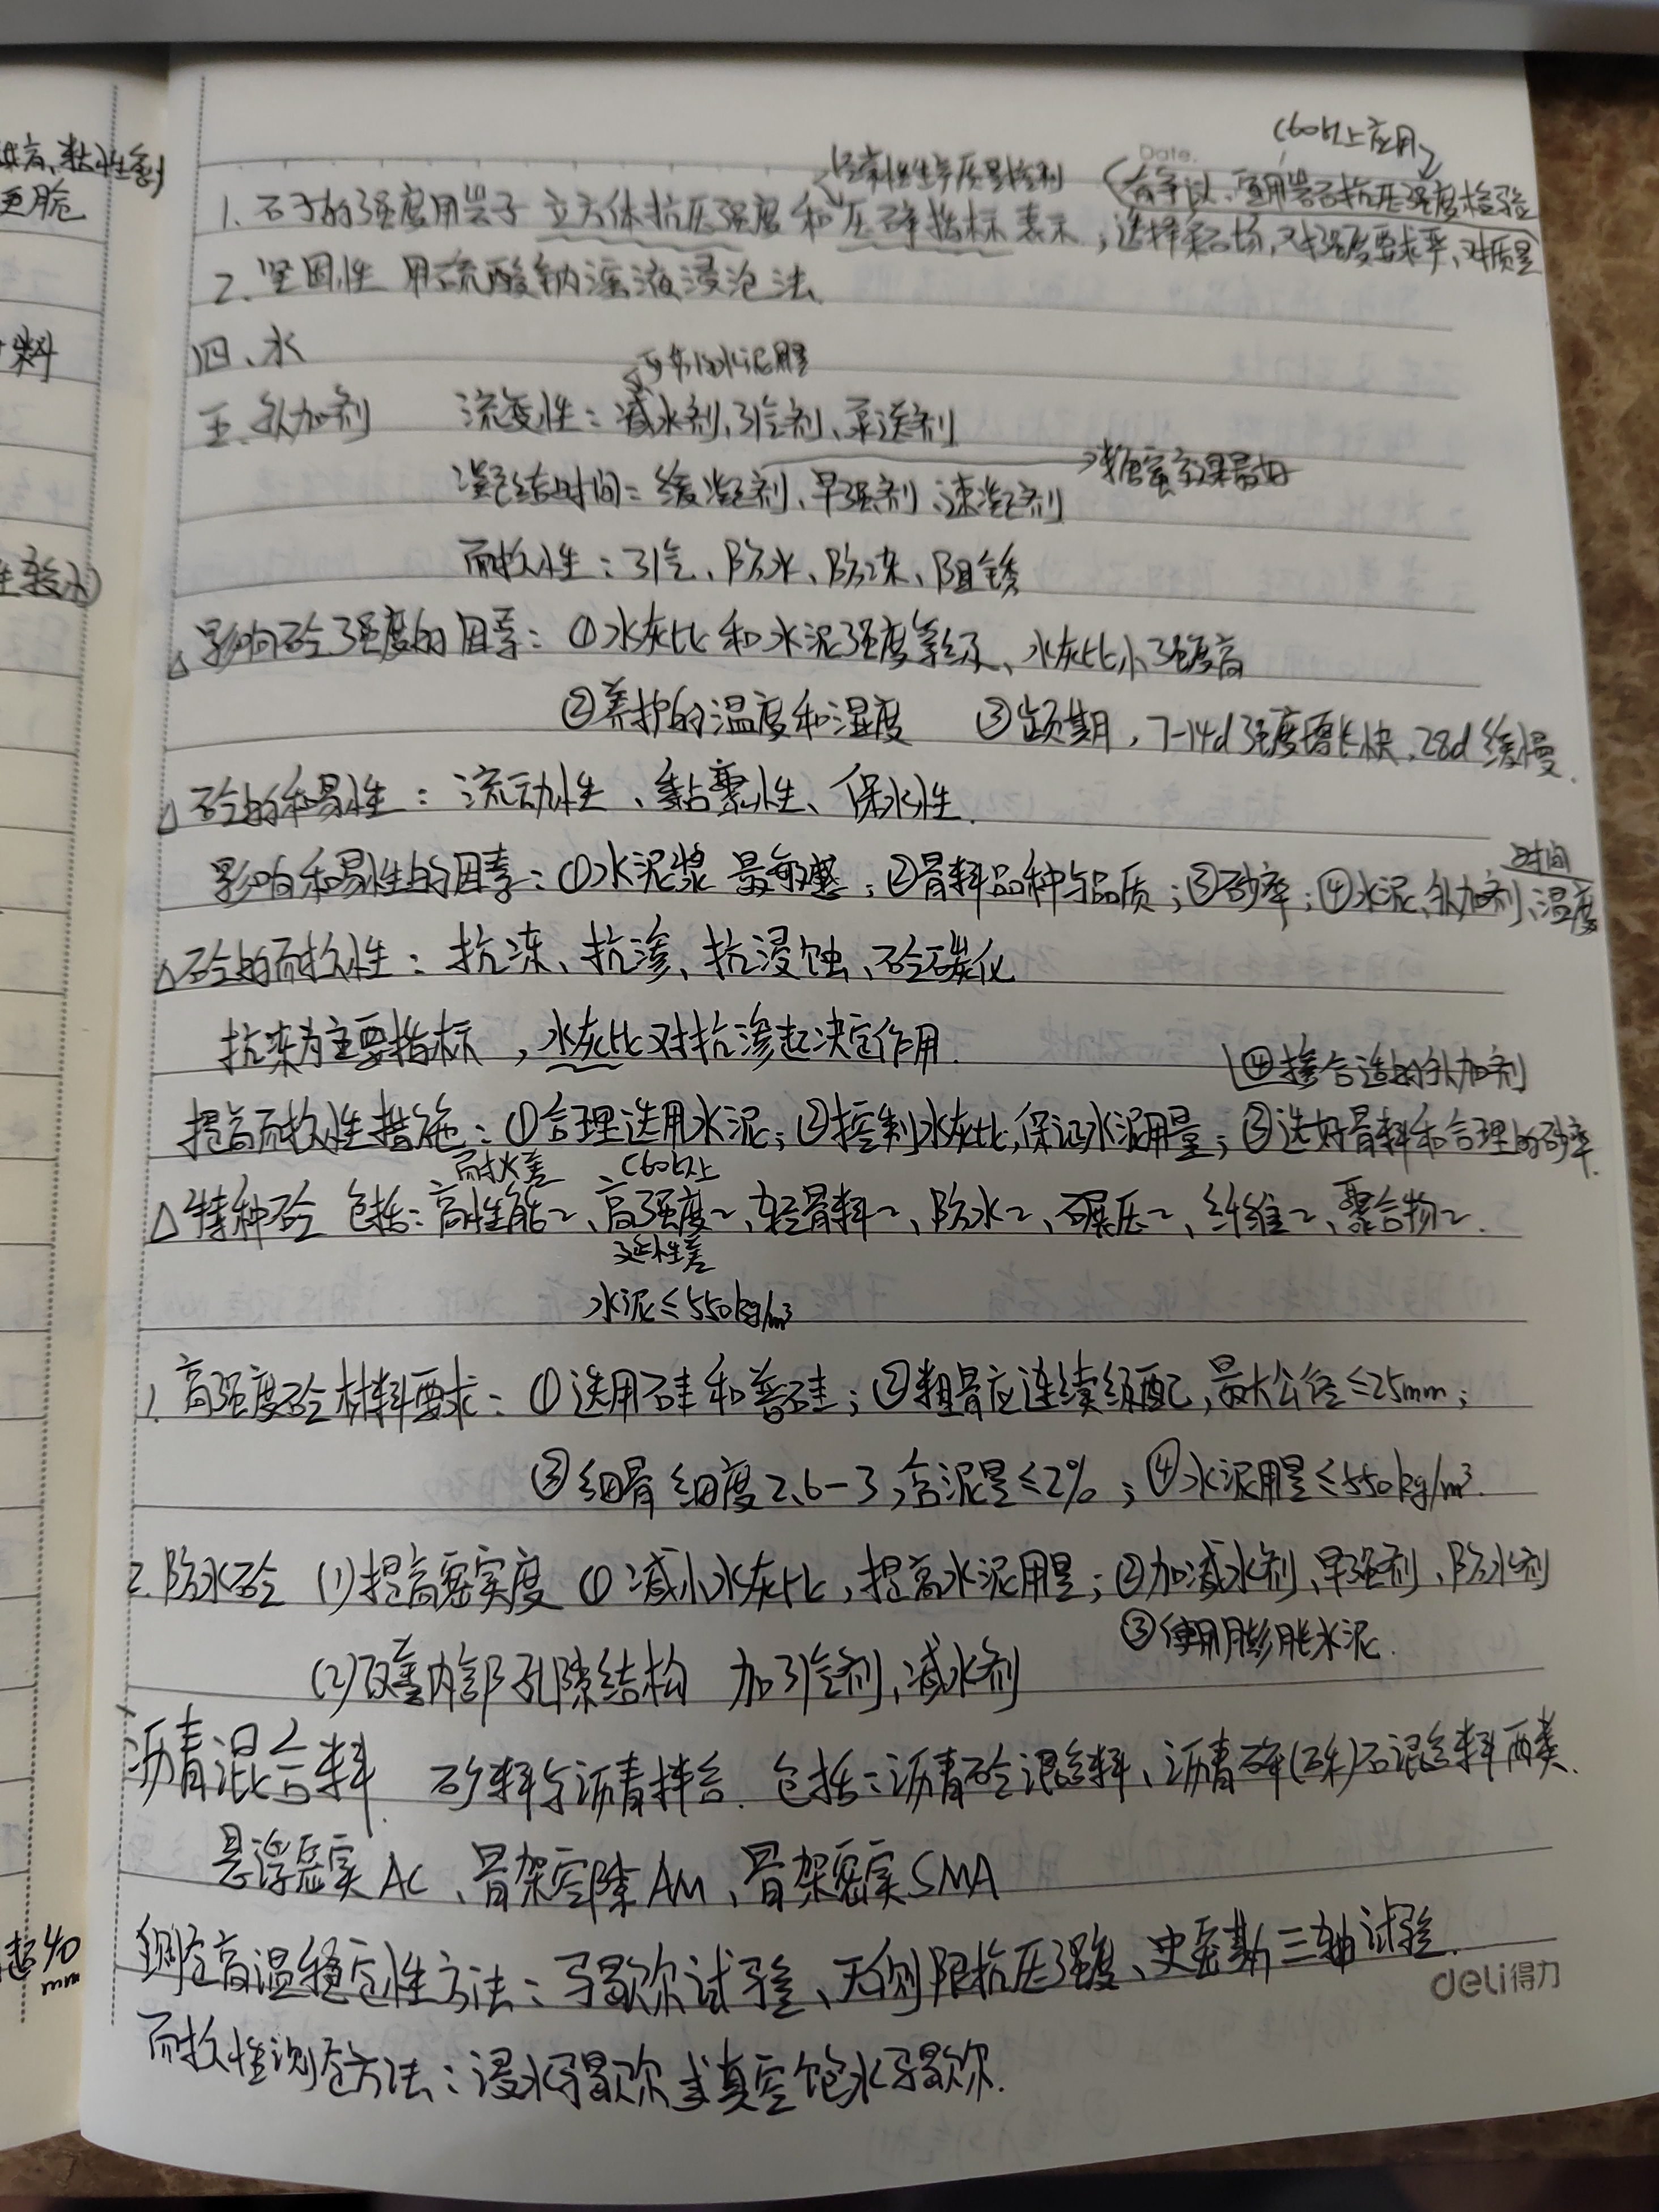 C60以上应用
Date.
经常性生产质量控制
(有争议,宜用岩石抗压强度检验
1. 石子的强度用岩子立方体抗压强度和压碎指标表示;选择采石场,对强度要求严、对质量
2. 坚固性 用硫酸钠溶液浸泡法.
四、水
可节约水泥用量
五.外加剂 流变性:减水剂、引气剂、泵送剂
→糖蜜效果最好
凝结时间:缓凝剂、早强剂、速凝剂
耐久性:引气、防水、防冻、阻锈
△影响砼强度的因素:①水灰比和水泥强度等级、水灰比小强度高
②养护的温度和湿度 ③龄期,7-14d强度增长快,28d缓慢.
△砼的和易性:流动性、黏聚性、保水性.
时间
影响和易性的因素:①水泥浆 最敏感;②骨料品种与品质;③砂率;④水泥、外加剂、温度
△砼的耐久性:抗冻、抗渗、抗浸蚀、砼碳化
抗冻为主要指标,水灰比对抗渗起决定作用.
④掺合适的外加剂
提高耐久性措施:①合理选用水泥;②控制水灰比,保证水泥用量;③选好骨料和合理的砂率.
耐火差 C60以上
△特种砼 包括:高性能~、高强度~、轻骨料~、防水~、碾压~、纤维~、聚合物~.
延性差
水泥≤550kg/m³
1. 高强度砼材料要求:①选用硅和普硅;②粗骨应连续级配,最大公径≤25mm;
③细骨细度2.6-3,含泥量≤2%;④水泥用量≤550kg/m³.
2.防水砼 (1)提高密实度 ①减小水灰比,提高水泥用量;②加减水剂、早强剂、防水剂
③使用膨胀水泥.
(2)改善内部孔隙结构 加引气剂、减水剂
沥青混合料 矿料与沥青拌合. 包括:沥青砼混合料、沥青碎(砾)石混合料两类.
悬浮密实AC、骨架空隙AM、骨架密实SMA
测定高温稳定性方法:马歇尔试验、无侧限抗压强度、史密斯三轴试验.
耐久性测定方法:浸水马歇尔或真空饱水马歇尔.
deli得力
粘性
更脆
料
超40
mm